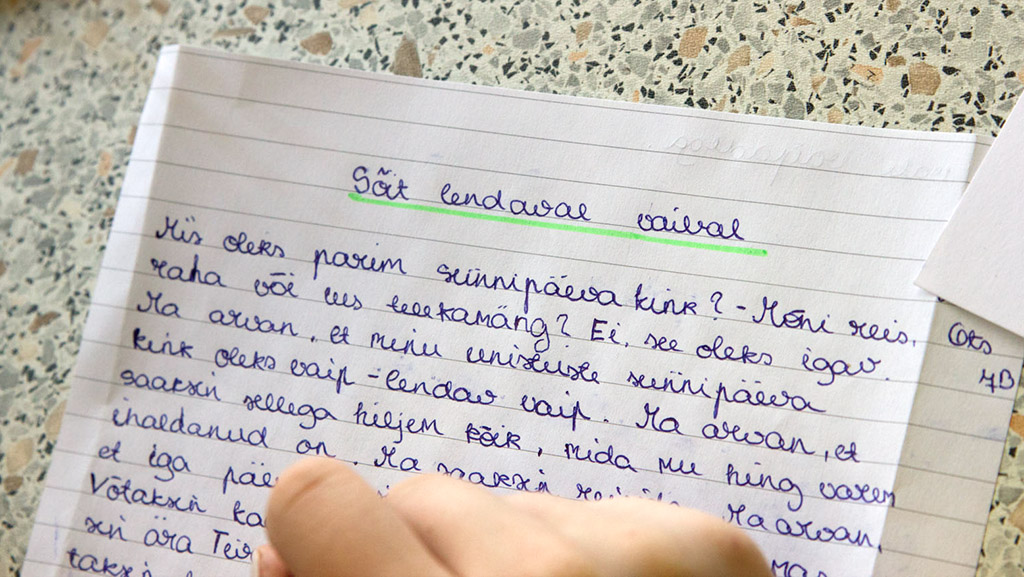 Sõit lendaval vaibal
Mis oleks parim sünnipäeva kink? - Mõni reis,
raha või uus telekamäng? Ei, see oleks igav.
Ma arvan, et minu unistuste sünnipäeva
kink oleks vaip - lendav vaip. Ma arvan, et
saaksin sellega hiljem kõik, mida mu hing varem
ihaldanud on. Ma saaksin Ma arvan,
et iga
Võtaksin
sin ära
Ots
7B